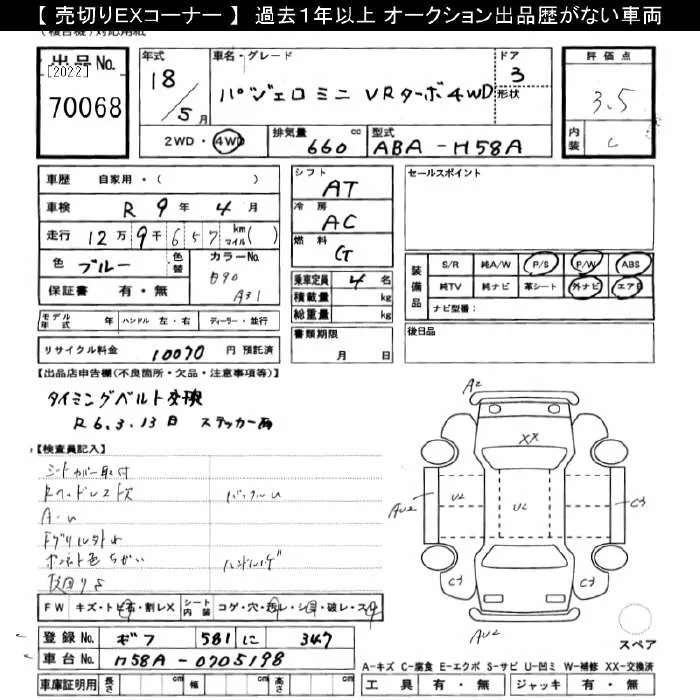 【 売切りEXコーナー 】 過去１年以上 オークション出品歴がない車両
(複合機)対応用紙
出品No.
[2022]
70068
年式 18 / 5月
車名・グレード パジェロミニ VRターボ4WD
ドア 3
形状
2WD・4WD
排気量 660 cc
型式 ABA-H58A
評価点 3.5
内装 C
車歴 自家用・( )
車検 R 9年 4月
走行 12万 9千 657 km マイル( )
色 ブルー 色替
カラーNo. B90 A31
保証書 有・無
シフト AT
冷房 AC
燃料 G
乗車定員 4 名
積載量 kg
総重量 kg
書類期限 月 日
セールスポイント
装備品
S/R 純A/W P/S P/W ABS
純TV 純ナビ 革シート 外ナビ エアB
ナビ型番：
後日品
モデル年式 年 ハンドル 左・右 ディーラー・並行
リサイクル料金 10070 円 預託済
【出品店申告欄(不良箇所・欠品・注意事項等)】
タイミングベルト交換
R6.3.13 日 ステッカー有
【検査員記入】
シートカバー取付
Rヘッドレスト欠
A-U
Fグリル外れ
ボンネット色ちがい
ハンドルハゲ
FW キズ・トビ石・割レX
シート内装 コゲ・穴・汚レ・シミ・破レ・スレ
登録No. ギフ 581 に 347
車台No. H58A-0705198
車庫証明用 長さ cm 幅 cm 高さ cm
A2
XX
AU2
U2
U2
C3
C3
C3
AU2
スペア
A-キズ C-腐食 E-エクボ S-サビ U-凹ミ W-補修 XX-交換済
工具 有・無 ジャッキ 有・無